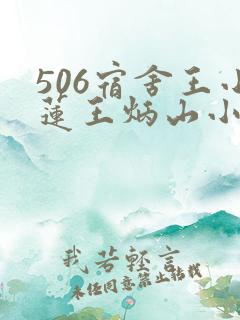 506宿舍王小
莲王炳山小
我若轻言
未经同意禁止转载